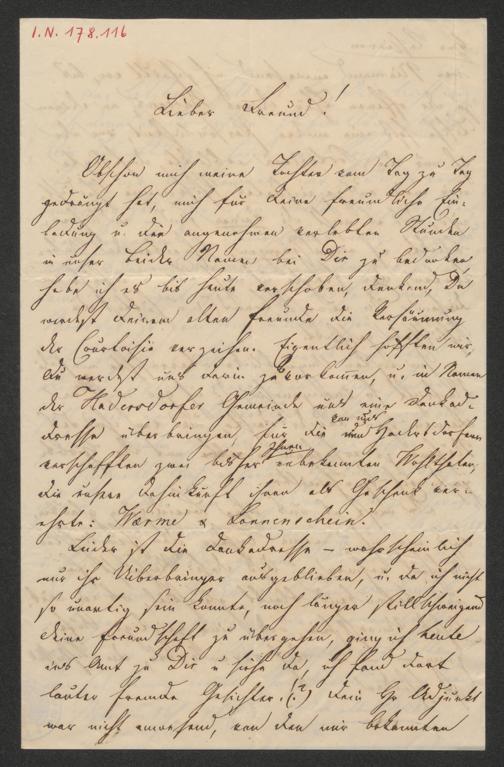 I.N. 178.116
Lieber Freund!
Obschon mich meine Tochter von Tag zu Tag
gedrängt hat, mich für Deine freundliche Ein-
ladung u. die angenehmen verlebten Stunden
in unser beider Namen bei Dir zu bedanken
habe ich es bis heute verschoben, denkend, Du
werdest Deinem alten Freunde die Versäumung
der Courtoisie verzeihen. Eigentlich hofften wir,
Du werdest uns darin zuvorkommen, u. im Namen
der Hadersdorfer Gemeinde uns eine Dankad-
dresse überbringen, für die von uns den Hadersdorfern
verschafften zwei bisher ihnen unbekannten Wohlthaten,
die unsere Dahinkunft ihnen als Geschenk ver-
ehrte: Wärme & Sonnenschein.
Leider ist die Dankadresse – wahrscheinlich
nur ihr Überbringer ausgeblieben, u. da ich nicht
so unartig sein konnte, noch länger stillschweigend
Deine Freundschaft zu übergehen, ging ich heute
ins Amt zu Dir u siehe da, ich fand dort
lauter fremde Gesichter. (?) Dein Hr Adjunkt
war nicht anwesend, von den mir bekannten